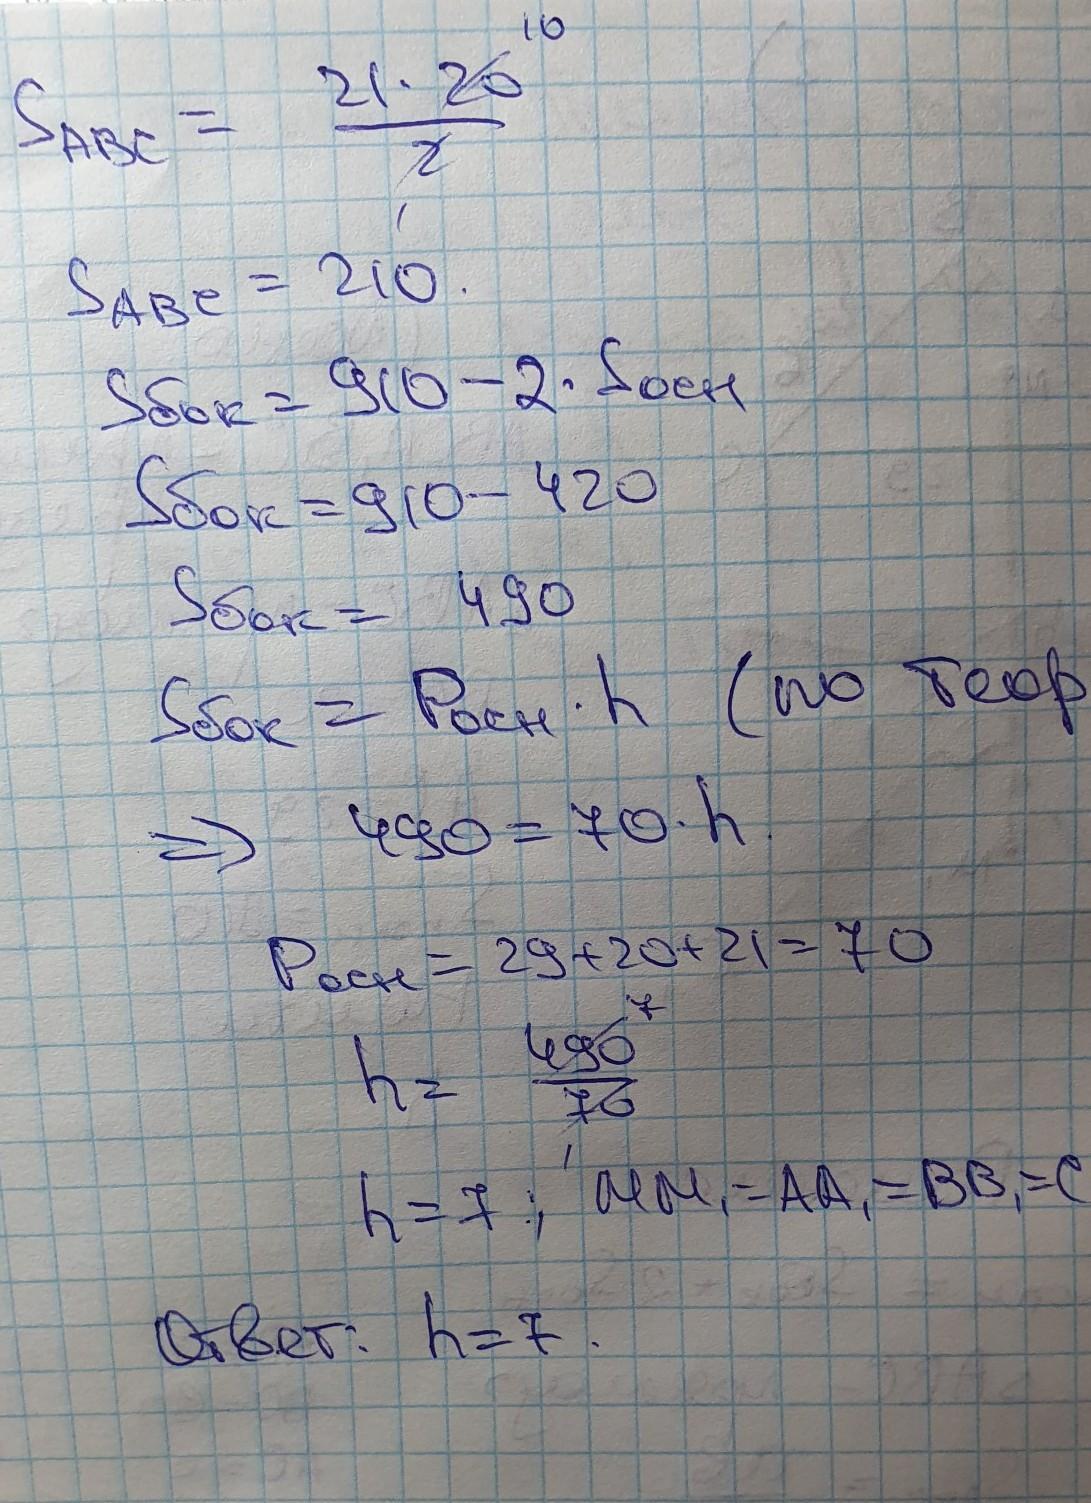 10
S_ABC = 21 · 20 / 2
1
S_ABC = 210.
Sбок = 910 - 2 · Sосн
Sбок = 910 - 420
Sбок = 490
Sбок = Pосн · h (по теор
⇒ 490 = 70 · h.
Pосн = 29 + 20 + 21 = 70
7
h = 490 / 70
1
h = 7 ; MM₁ = AA₁ = BB₁ = C
Ответ: h = 7.